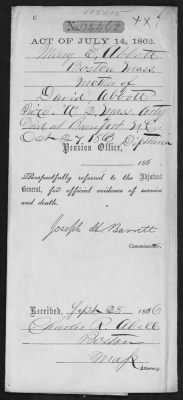 No. 136,463
ACT OF JULY 14, 1862.
Mary E. Abbott
Boston Mass
Mother of
David Abbott
2 Mass Arty
Died at Beaufort N.C.
Oct 27, 1863
Pension Office,
186 .
Respectfully referred to the Adjutant
General, for official evidence of service
and death.
Joseph H. Barrett
Commissioner.
Received, Sept 25 1866
Charles R. Abell
Boston
Mass
Attorney.